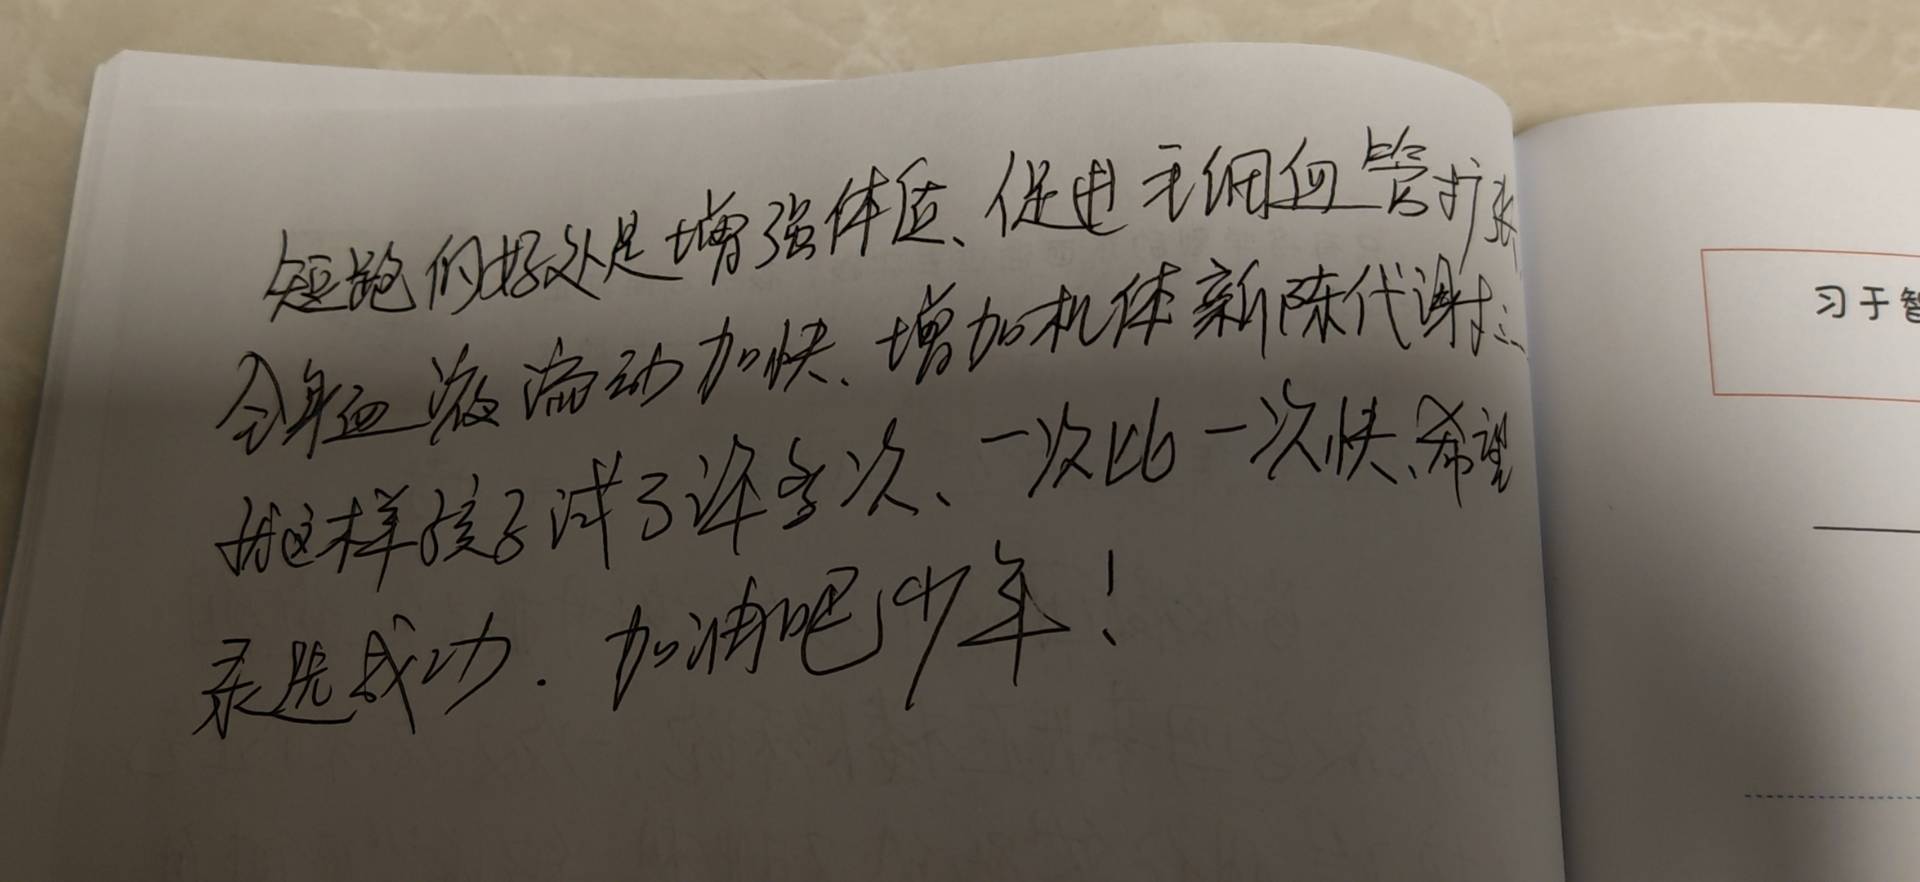 短跑的好处是增强体质、促进毛细血管扩张
全身血液流动加快、增加机体新陈代谢
这样孩子试了许多次、一次比一次快、希望
录选成功.加油吧少年!
习于智